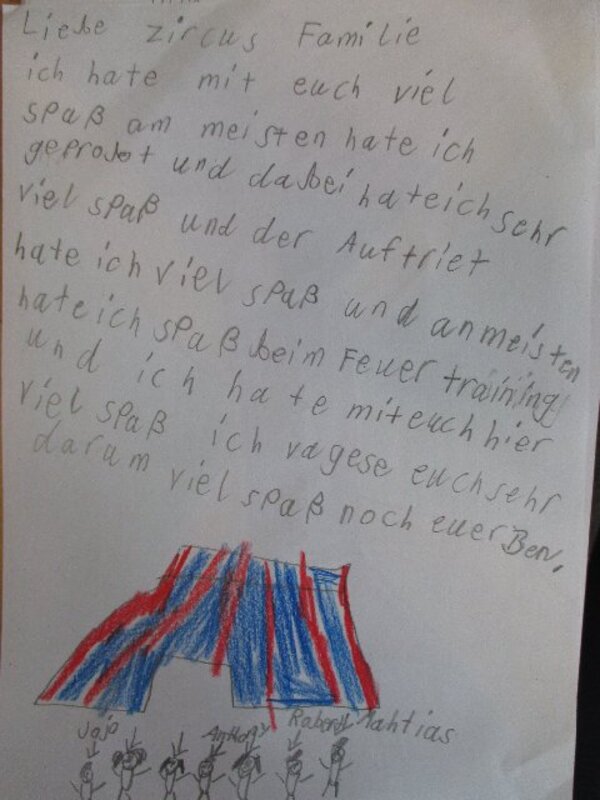 Liebe zircus Familie
ich hate mit euch viel
spaß am meisten hate ich
geprobt und dabei hate ich sehr
viel spaß und der Auftriet
hate ich viel spaß und anmeisten
hate ich spaß beim Feuer training
und ich hate mit euch hier
viel spaß ich vagese euch sehr
darum viel spaß noch euer Ben.
Jojo Anthony Robert Mahtias